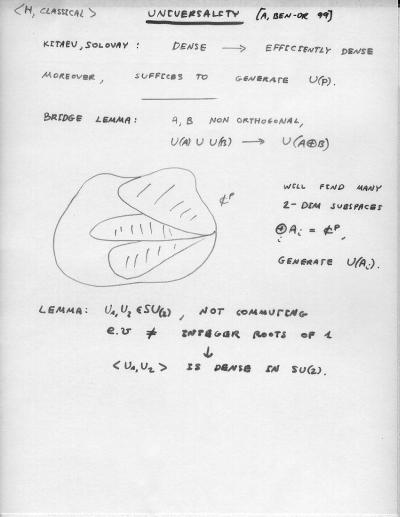 <H, CLASSICAL> UNIVERSALITY [A, BEN-OR 99]
KITAEV, SOLOVAY: DENSE → EFFICIENTLY DENSE
MOREOVER, SUFFICES TO GENERATE U(p).
BRIDGE LEMMA: A, B NON ORTHOGONAL,
U(A) ∪ U(B) → U(A⊕B)
₵ᴾ
WILL FIND MANY
2-DIM SUBSPACES
⊕Aᵢ = ₵ᴾ,
i
GENERATE U(Aᵢ).
LEMMA: U₁,U₂ ∈ SU(2), NOT COMMUTING
e.v ≠ INTEGER ROOTS OF 1
↓
<U₁,U₂> IS DENSE IN SU(2).